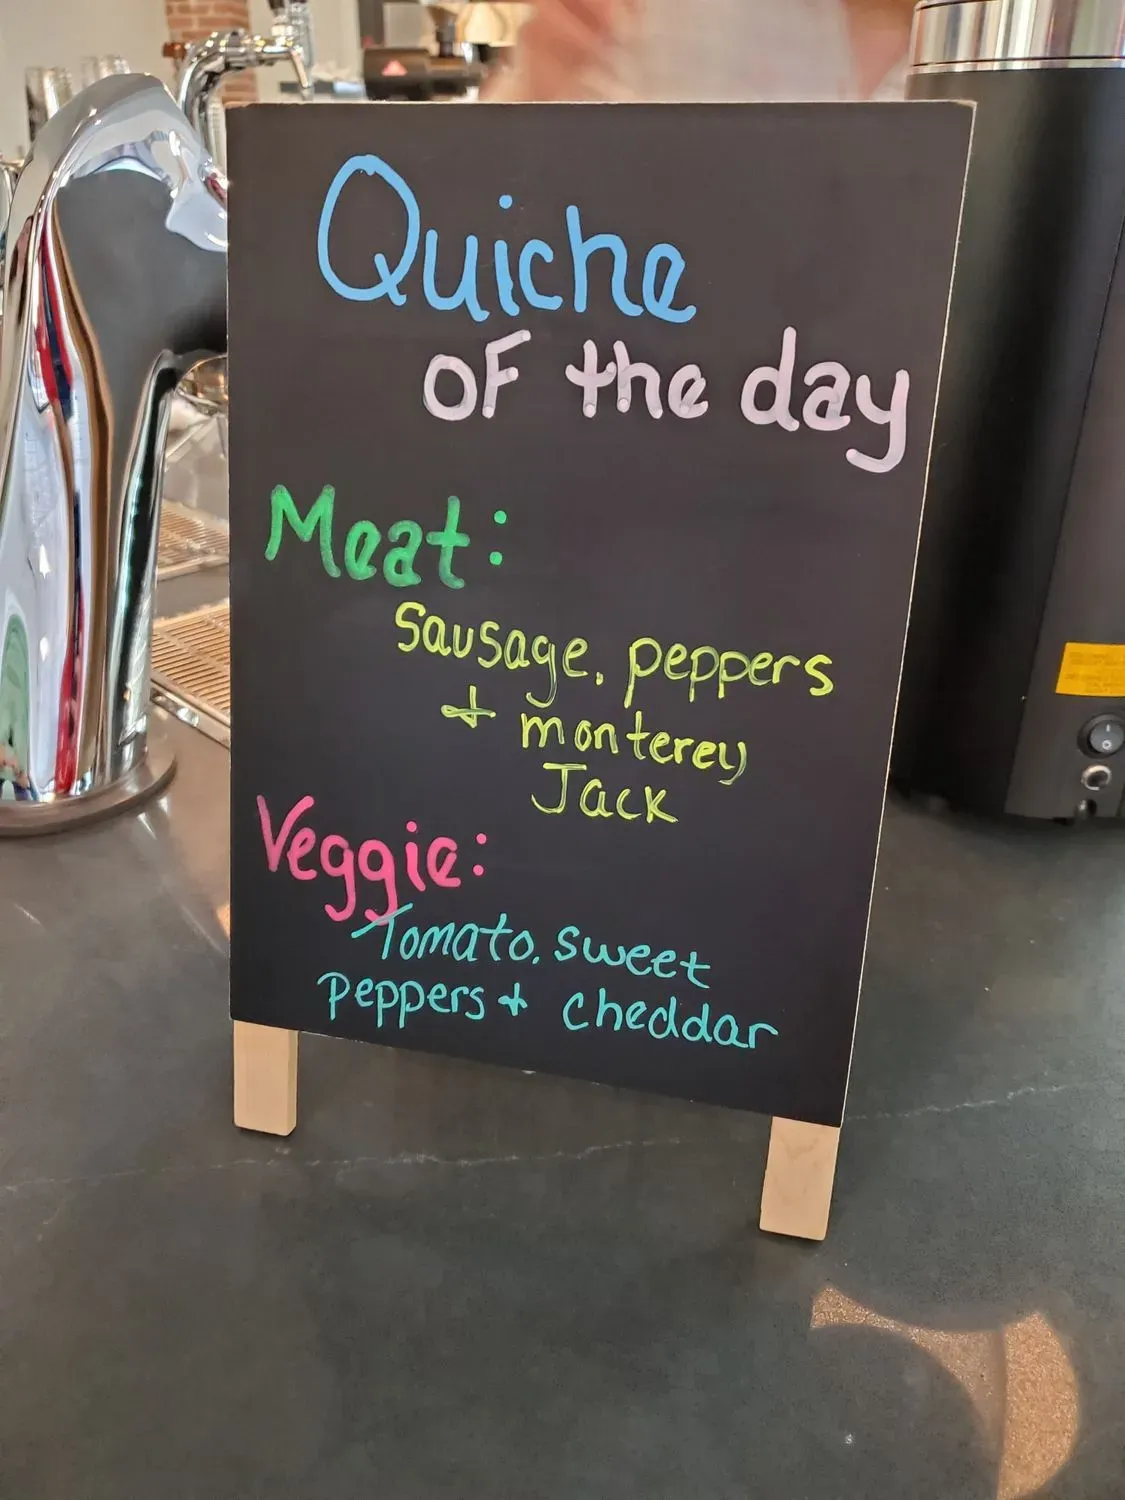 Quiche
of the day
Meat:
Sausage, peppers
+ monterey
Jack
Veggie:
Tomato, sweet
peppers + cheddar